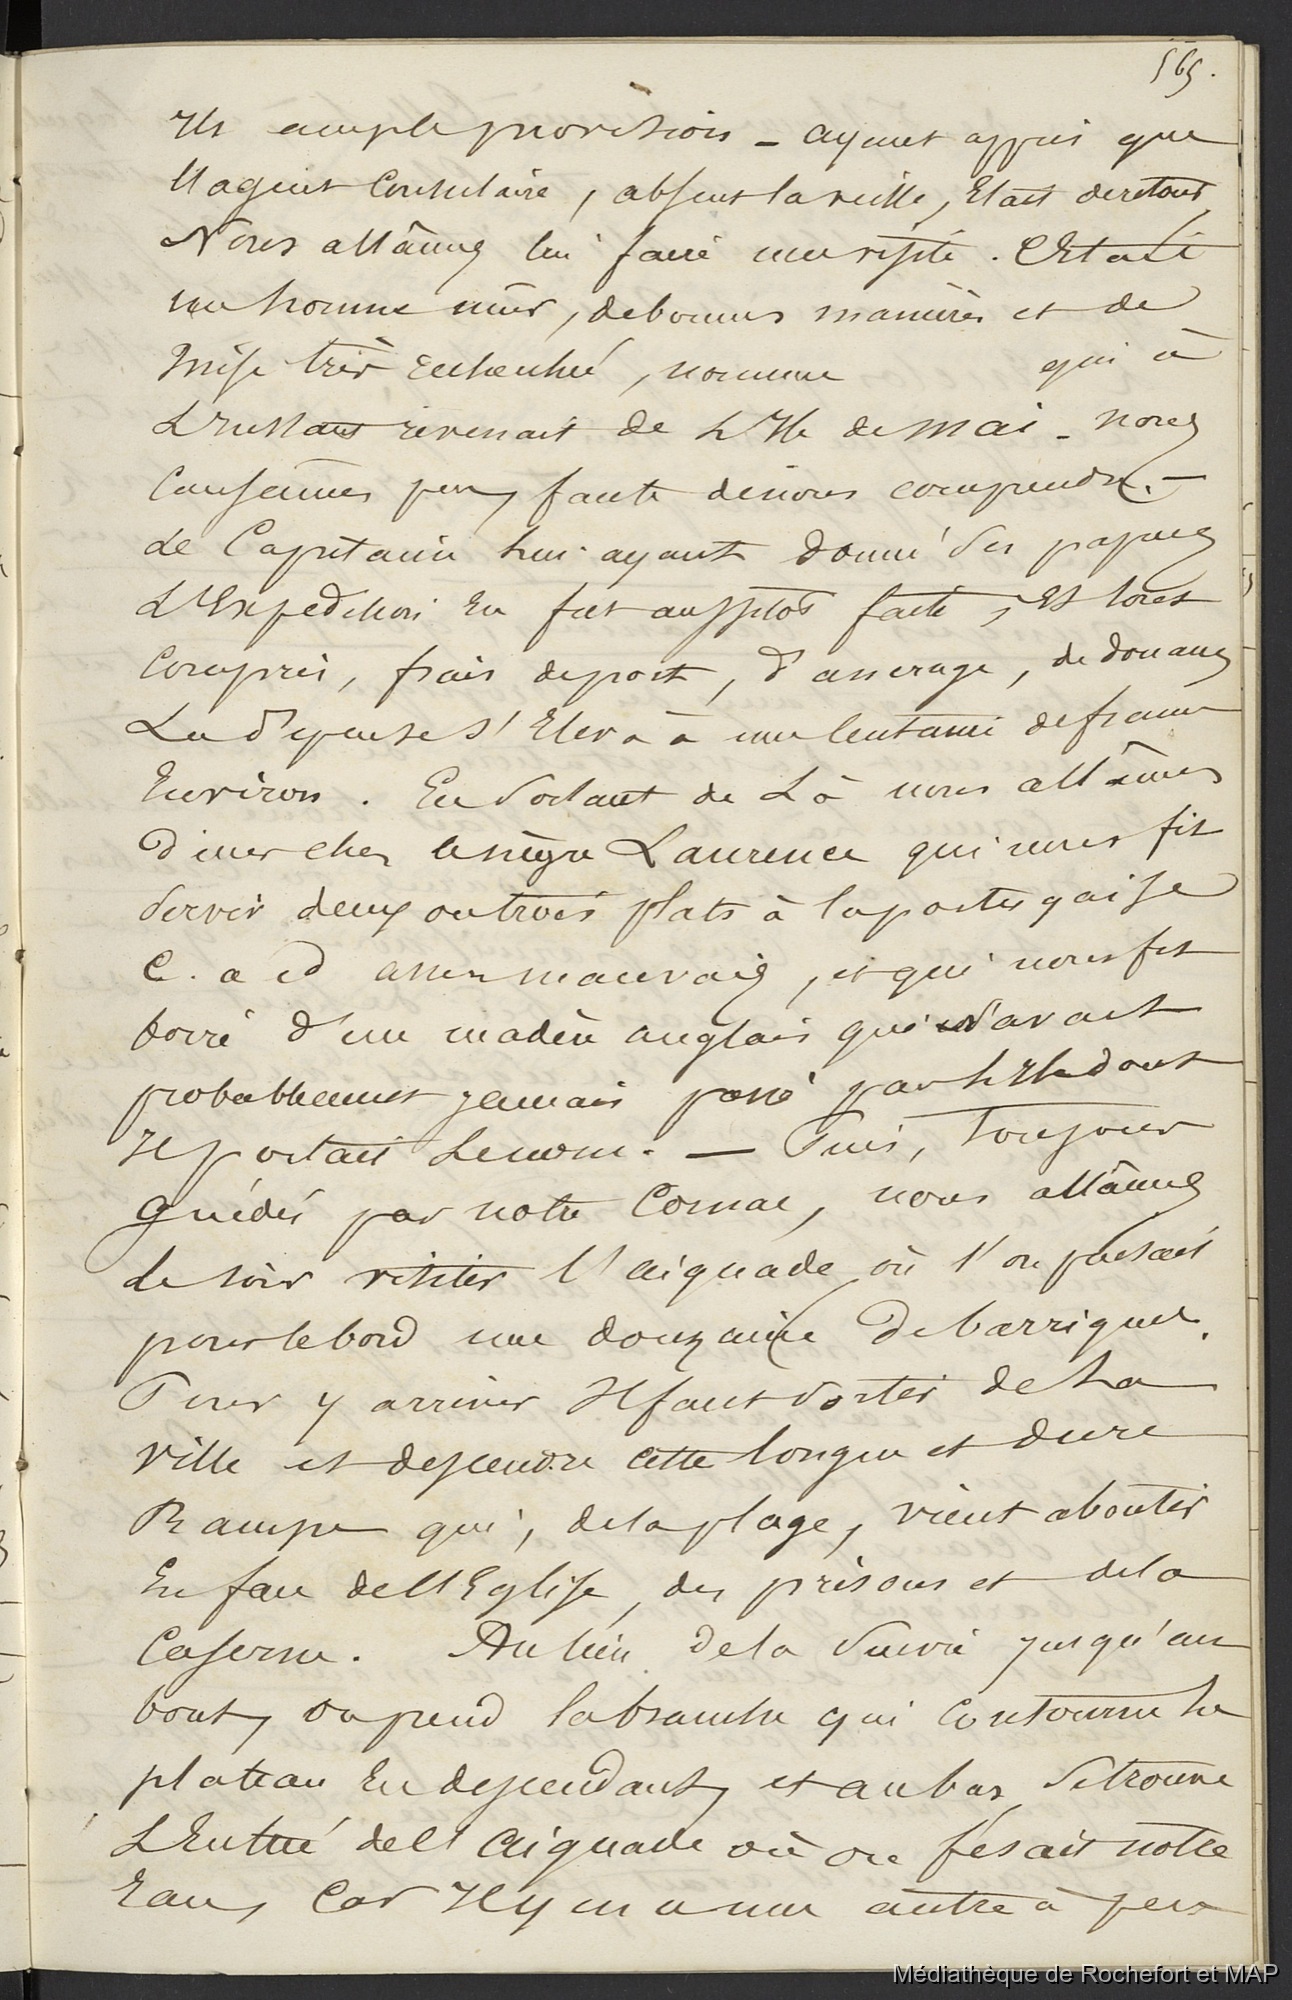 565.
Ils ample provision _ ayant appris que
l'agent Consulaire, absent la veille, Etait de retour,
Nous allâmes lui faire une visite. C'Etait
un homme mûr, de bonnes manières et de
mise très recherchée, nommé qui à
L'instant revenait de L'Ile de Mai _ nous
Causâmes peu, faute de nous comprendre. _
Le Capitaine lui ayant donné ses papiers
L'Expedition En fut aussitôt faite, Et tout
Compris, frais de port, d'ancrage, de douane,
La dépense s'Eleva à une Centaine de francs
Environ. En Sortant de Là nous allâmes
Diner chez le nègre Laurence qui nous fit
Servir deux ou trois plats à la portugaise
C. a d assez mauvais, et qui nous fit
boire d'un madère anglais qui n'avait
probablement jamais passé par L'Ile dont
Il portait Le nom. — Puis, Toujours
guidés par notre Cornac, nous allâmes
le soir visiter l'aiguade où l'on faisait
pour le bord une douzaine de barriques.
Pour y arriver Il faut Sortir de La
ville et descendre cette longue et dure
Rampe qui, de la plage, vient aboutir
En face de l'Eglise, des prisons et de la
Caserne. Au lieu de la Suivre jusqu'au
bout, on prend la branche qui Contourne Le
plateau En descendant, et au bas Se trouve
L'Entrée de l'Aiguade où on fesait notre
Eau, Car Il y en a une autre à peu
Médiathèque de Rochefort et MAP